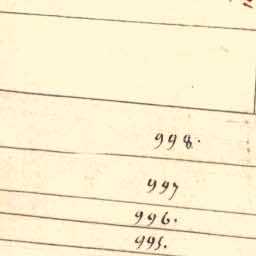 998.
997
996.
995.